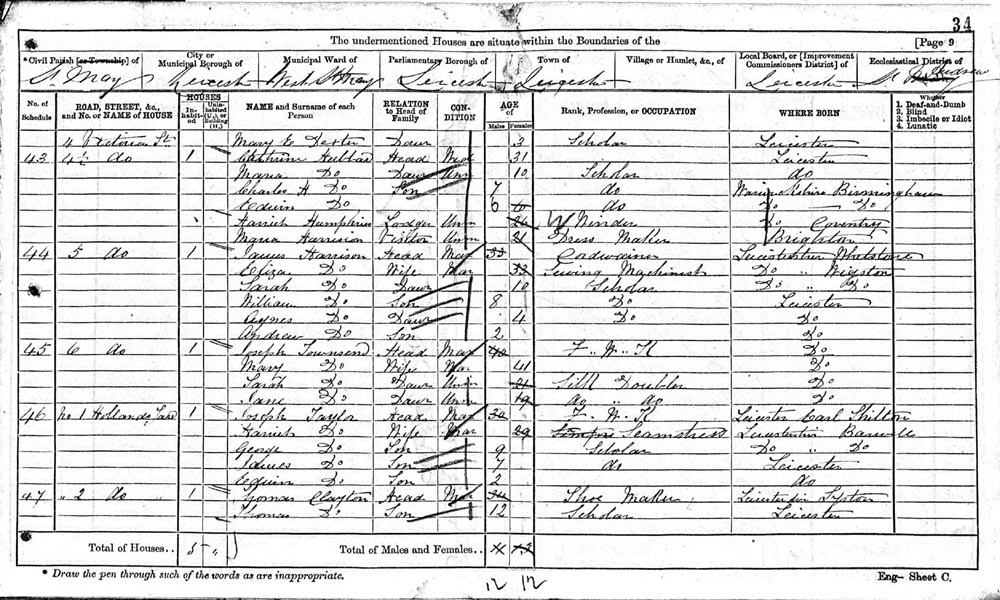 34
The undermentioned Houses are situate within the Boundaries of the [Page 9
*Civil Parish [or Township] of City or Municipal Borough of Municipal Ward of Parliamentary Borough of Town of Village or Hamlet, &c., of Local Board, or [Improvement Commissioners District] of Ecclesiastical District of
St. Mary Leicester West St Mary Leicester Leicester Leicester St. Andrew
No. of Schedule ROAD, STREET, &c., and No. or NAME of HOUSE HOUSES Inhabited Uninhabited (U.), or Building (B.) NAME and Surname of each Person RELATION to Head of Family CONDITION AGE of Males Females Rank, Profession, or OCCUPATION WHERE BORN Whether 1. Deaf-and-Dumb 2. Blind 3. Imbecile or Idiot 4. Lunatic
4 Victoria St Mary E. Dexter Daur 3 Scholar Leicester
43 4½ do 1 Cathrine Head Wid 31 Leicester
Maria Do Daur Unm 10 Scholar do
Charles H Do Son 7 do Warwickshire Birmingham
Edwin Do 6 do Do — Do
Harriet Humphries Lodger Unm 26 W Winder Do Coventry
Maria Harrison Visitor Unm 21 Dress Maker Brighton
44 5 do 1 James Harrison Head Mar 33 Cordwainer Leicestershire Whetstone
Eliza Do Wife Mar 33 Sewing Machinist Do " Wigston
Sarah Do Daur 10 Scholar Do " Do
William Do Son 8 Do Leicester
Agnes Do Daur 4 Do Do
Andrew Do Son 2 Do
45 6 do 1 Joseph Townsend Head Mar 40 F. W. K Do
Mary Do Wife Mar 41 Do
Sarah Do Daur Unm 21 Silk Doubler Do
Jane Do Daur Unm 19 do " do Do
46 No 1 Hollands Yard 1 Joseph Taylor Head Mar 30 F. W. K Leicester Earl Shilton
Harriet Do Wife Mar 29 Seamstress Leicestershire Barwell
George Do Son 9 Scholar Do " Do
James Do Son 7 do Leicester
Edwin Do Son 2 do
47 " 2 do 1 Thomas Clayton Head Mar 34 Shoe Maker Leicestershire Syston
Thomas Do Son 12 Scholar Leicester
Total of Houses.. 5 Total of Males and Females.. 11 13
* Draw the pen through such of the words as are inappropriate. 12 12 Eng— Sheet C.